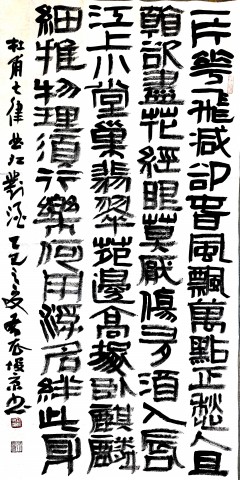 一片華飛減卻春風飄萬點正愁人且
看欲盡花經眼莫厭傷多酒入唇
江上小堂巢翡翠苑邊高塚臥麒麟
細推物理須行樂何用浮名絆此身
杜甫七律曲江對酒乙巳之夏